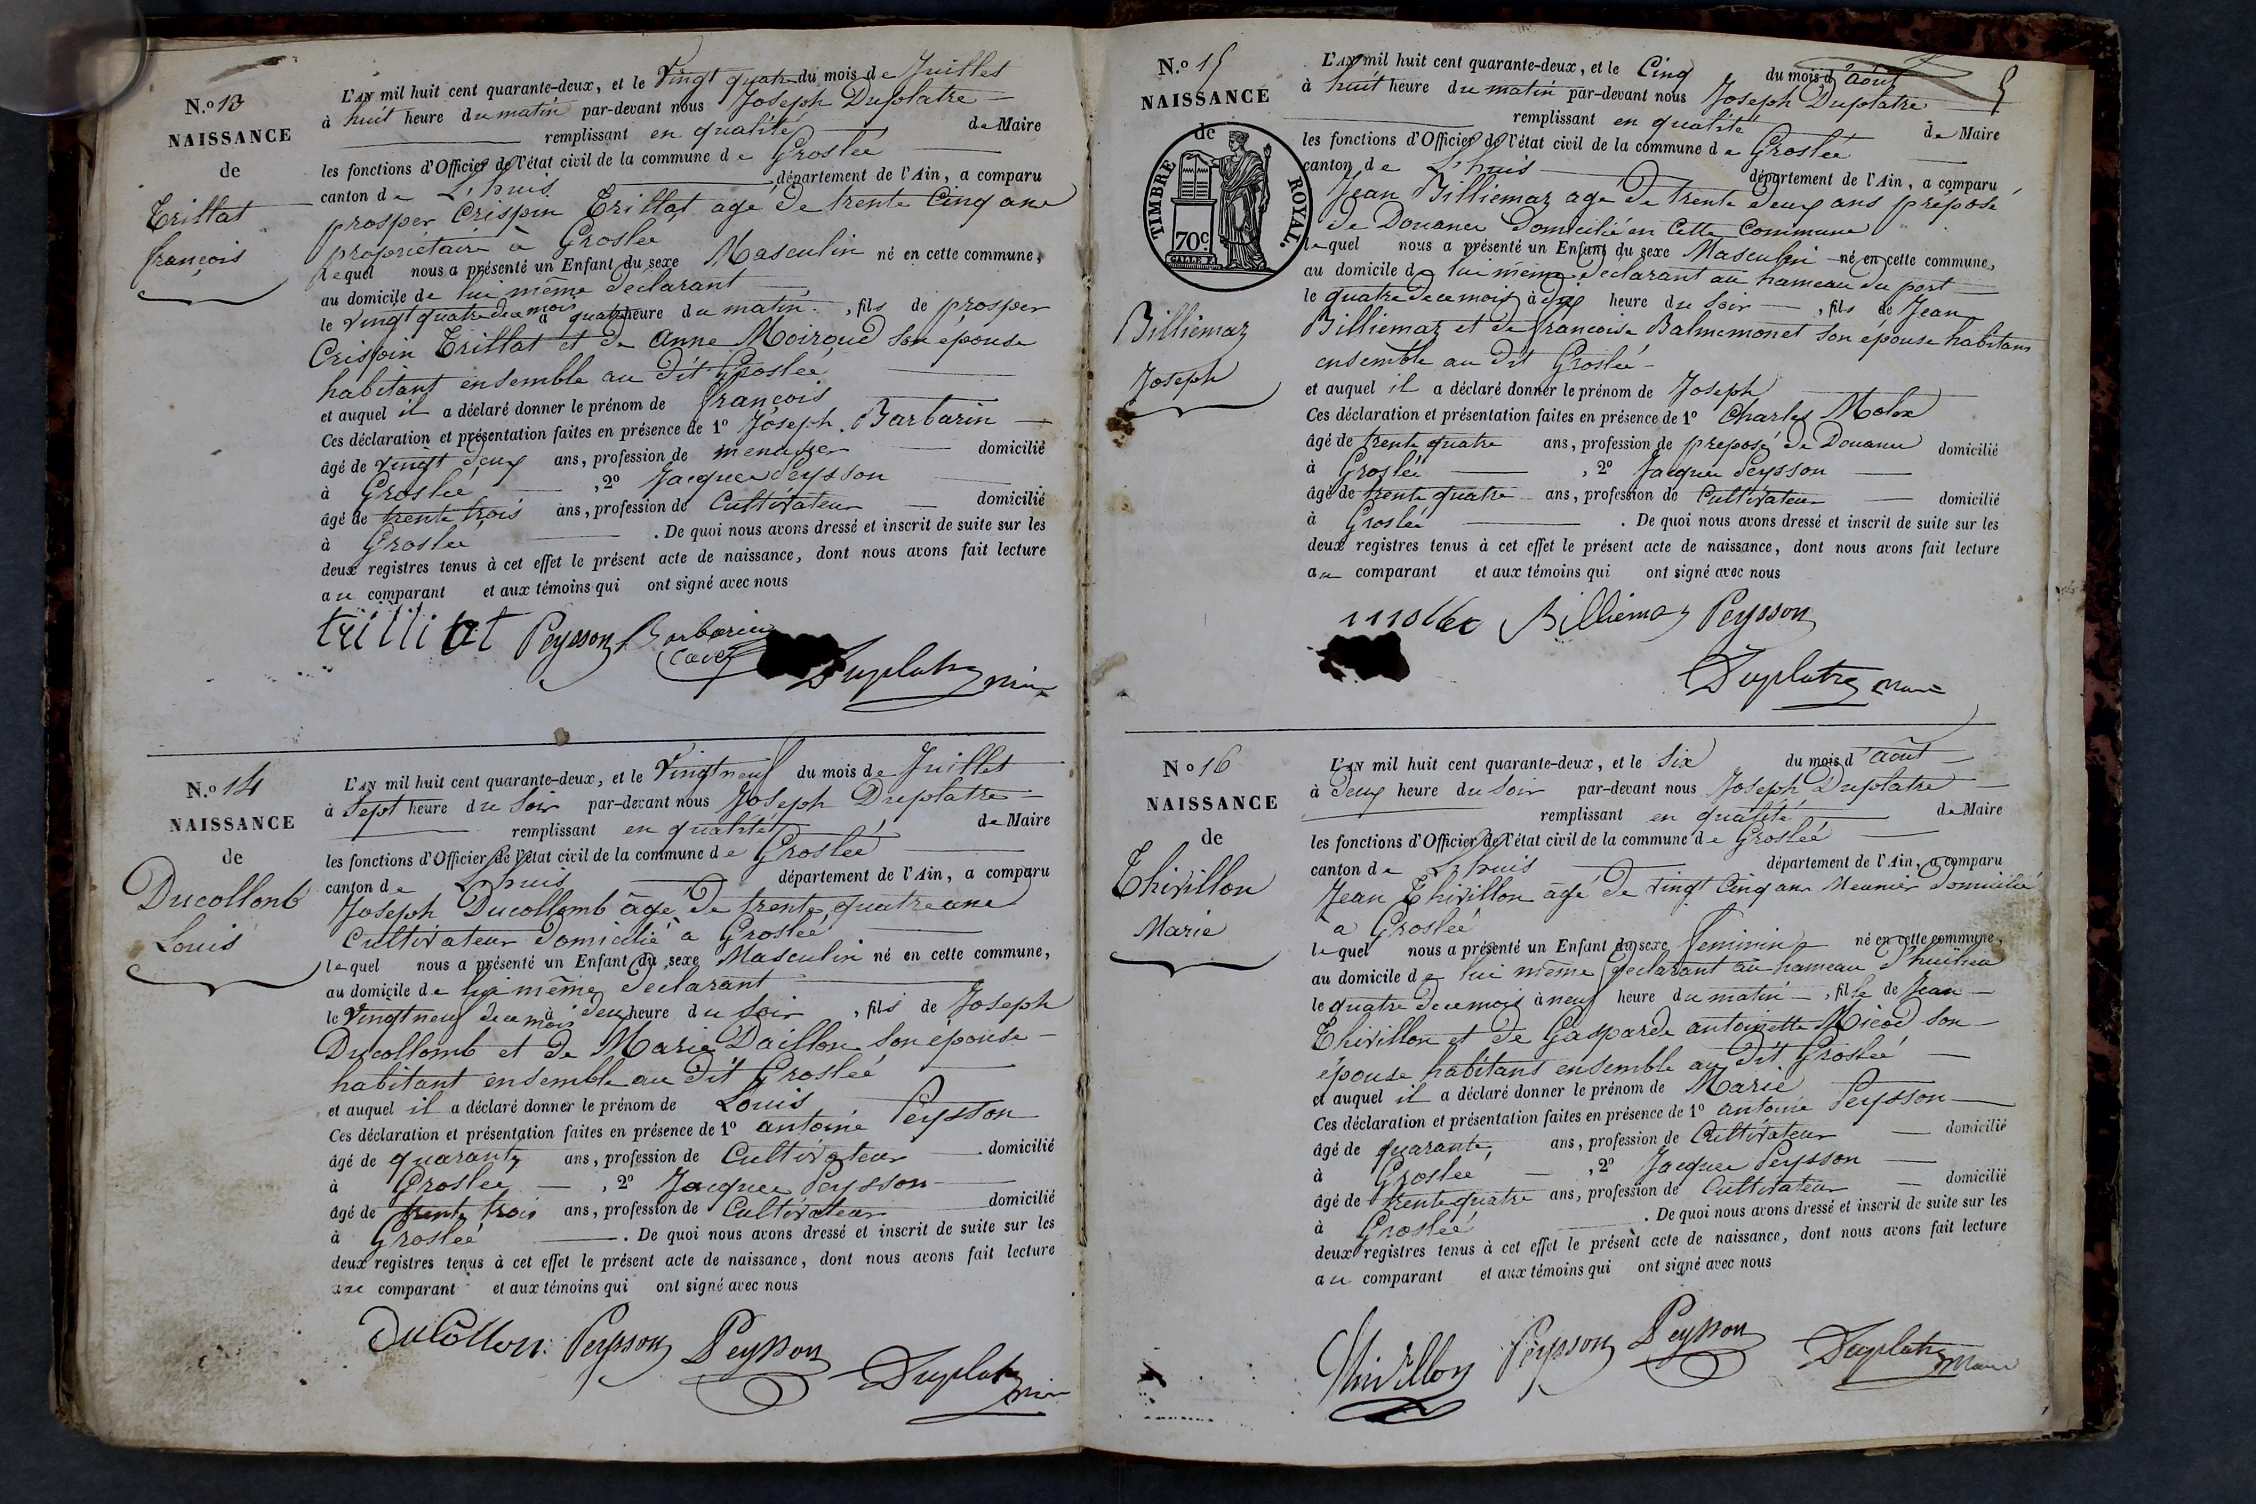 N.o 13
NAISSANCE
de
Trillat
françois
L'AN mil huit cent quarante-deux, et le Vingt quatre du mois de Juillet
à huit heure du matin par-devant nous Joseph Duplatre
remplissant en qualité de Maire
les fonctions d'Officier de l'état civil de la commune de Groslée
canton de L'huis département de l'Ain, a comparu
prosper Crispin Trillat age de trente Cinq ans
propriétaire à Groslée
lequel nous a présenté un Enfant du sexe Masculin né en cette commune,
au domicile de lui même declarant
le vingt quatre dece mois à quatre heure du matin, fils de prosper
Crispin Trillat et de Anne Moiroud son épouse
habitant ensemble au dit Groslée
et auquel il a déclaré donner le prénom de françois
Ces déclaration et présentation faites en présence de 1o Joseph Barbarin
âgé de vingt deux ans, profession de menager domicilié
à Groslée, 2o Jacques Peysson
âgé de trente trois ans, profession de Cultivateur domicilié
à Groslée. De quoi nous avons dressé et inscrit de suite sur les
deux registres tenus à cet effet le présent acte de naissance, dont nous avons fait lecture
au comparant et aux témoins qui ont signé avec nous
trilliat Peysson Barbarin
Duplatre maire
N.o 14
NAISSANCE
de
Ducollomb
Louis
L'AN mil huit cent quarante-deux, et le Vingt neuf du mois de Juillet
à Sept heure du Soir par-devant nous Joseph Duplatre
remplissant en qualité de Maire
les fonctions d'Officier de l'état civil de la commune de Groslée
canton de L'huis département de l'Ain, a comparu
Joseph Ducollomb âgé de trente quatre ans
Cultivateur domicilié à Groslée
lequel nous a présenté un Enfant du sexe Masculin né en cette commune,
au domicile de lui même declarant
le Vingt neuf dece mois à deux heure du Soir, fils de Joseph
Ducollomb et de Marie Daillon son épouse
habitant ensemble au dit Groslée
et auquel il a déclaré donner le prénom de Louis
Ces déclaration et présentation faites en présence de 1o antoine Peysson
âgé de quarante ans, profession de Cultivateur domicilié
à Groslée, 2o Jacques Peysson
âgé de trente trois ans, profession de Cultivateur domicilié
à Groslée. De quoi nous avons dressé et inscrit de suite sur les
deux registres tenus à cet effet le présent acte de naissance, dont nous avons fait lecture
au comparant et aux témoins qui ont signé avec nous
DuCollon Peysson Peysson
Duplatre maire
5
N.o 15
NAISSANCE
de
TIMBRE ROYAL.
70c.
Billiemaz
Joseph
L'AN mil huit cent quarante-deux, et le Cinq du mois d'août
à huit heure du matin par-devant nous Joseph Duplatre
remplissant en qualité de Maire
les fonctions d'Officier de l'état civil de la commune de Groslée
canton de L'huis département de l'Ain, a comparu
Jean Billiemaz age de trente deux ans préposé
de Douanes Domicilié en Cette Commune
lequel nous a présenté un Enfant du sexe Masculin né en cette commune,
au domicile de lui même declarant au hameau du port
le quatre dece mois à dix heure du Soir, fils de Jean
Billiemaz et de françoise Balmemonet son épouse habitans
ensemble au dit Groslée
et auquel il a déclaré donner le prénom de Joseph
Ces déclaration et présentation faites en présence de 1o Charles Molex
âgé de trente quatre ans, profession de preposé de Douanes domicilié
à Groslée, 2o Jacques Peysson
âgé de trente quatre ans, profession de Cultivateur domicilié
à Groslée. De quoi nous avons dressé et inscrit de suite sur les
deux registres tenus à cet effet le présent acte de naissance, dont nous avons fait lecture
au comparant et aux témoins qui ont signé avec nous
Billiemaz Peysson
Duplatre maire
No 16
NAISSANCE
de
Thivillon
Marie
L'AN mil huit cent quarante-deux, et le Six du mois d'août
à deux heure du Soir par-devant nous Joseph Duplatre
remplissant en qualité de Maire
les fonctions d'Officier de l'état civil de la commune de Groslée
canton de L'huis département de l'Ain, a comparu
Jean Thivillon âgé de vingt Cinq ans Meunier domicilié
a Groslée
lequel nous a présenté un Enfant du sexe feminin né en cette commune,
au domicile de lui même declarant au hameau
le quatre dece mois à neuf heure du matin, fille de Jean
Thivillon et de Gasparde antoinette Micod son
épouse habitans ensemble au dit Groslée
et auquel il a déclaré donner le prénom de Marie
Ces déclaration et présentation faites en présence de 1o antoine Peysson
âgé de quarante ans, profession de Cultivateur domicilié
à Groslée, 2o Jacques Peysson
âgé de trente quatre ans, profession de Cultivateur domicilié
à Groslée. De quoi nous avons dressé et inscrit de suite sur les
deux registres tenus à cet effet le présent acte de naissance, dont nous avons fait lecture
au comparant et aux témoins qui ont signé avec nous
Thivillon Peysson Peysson Duplatre maire